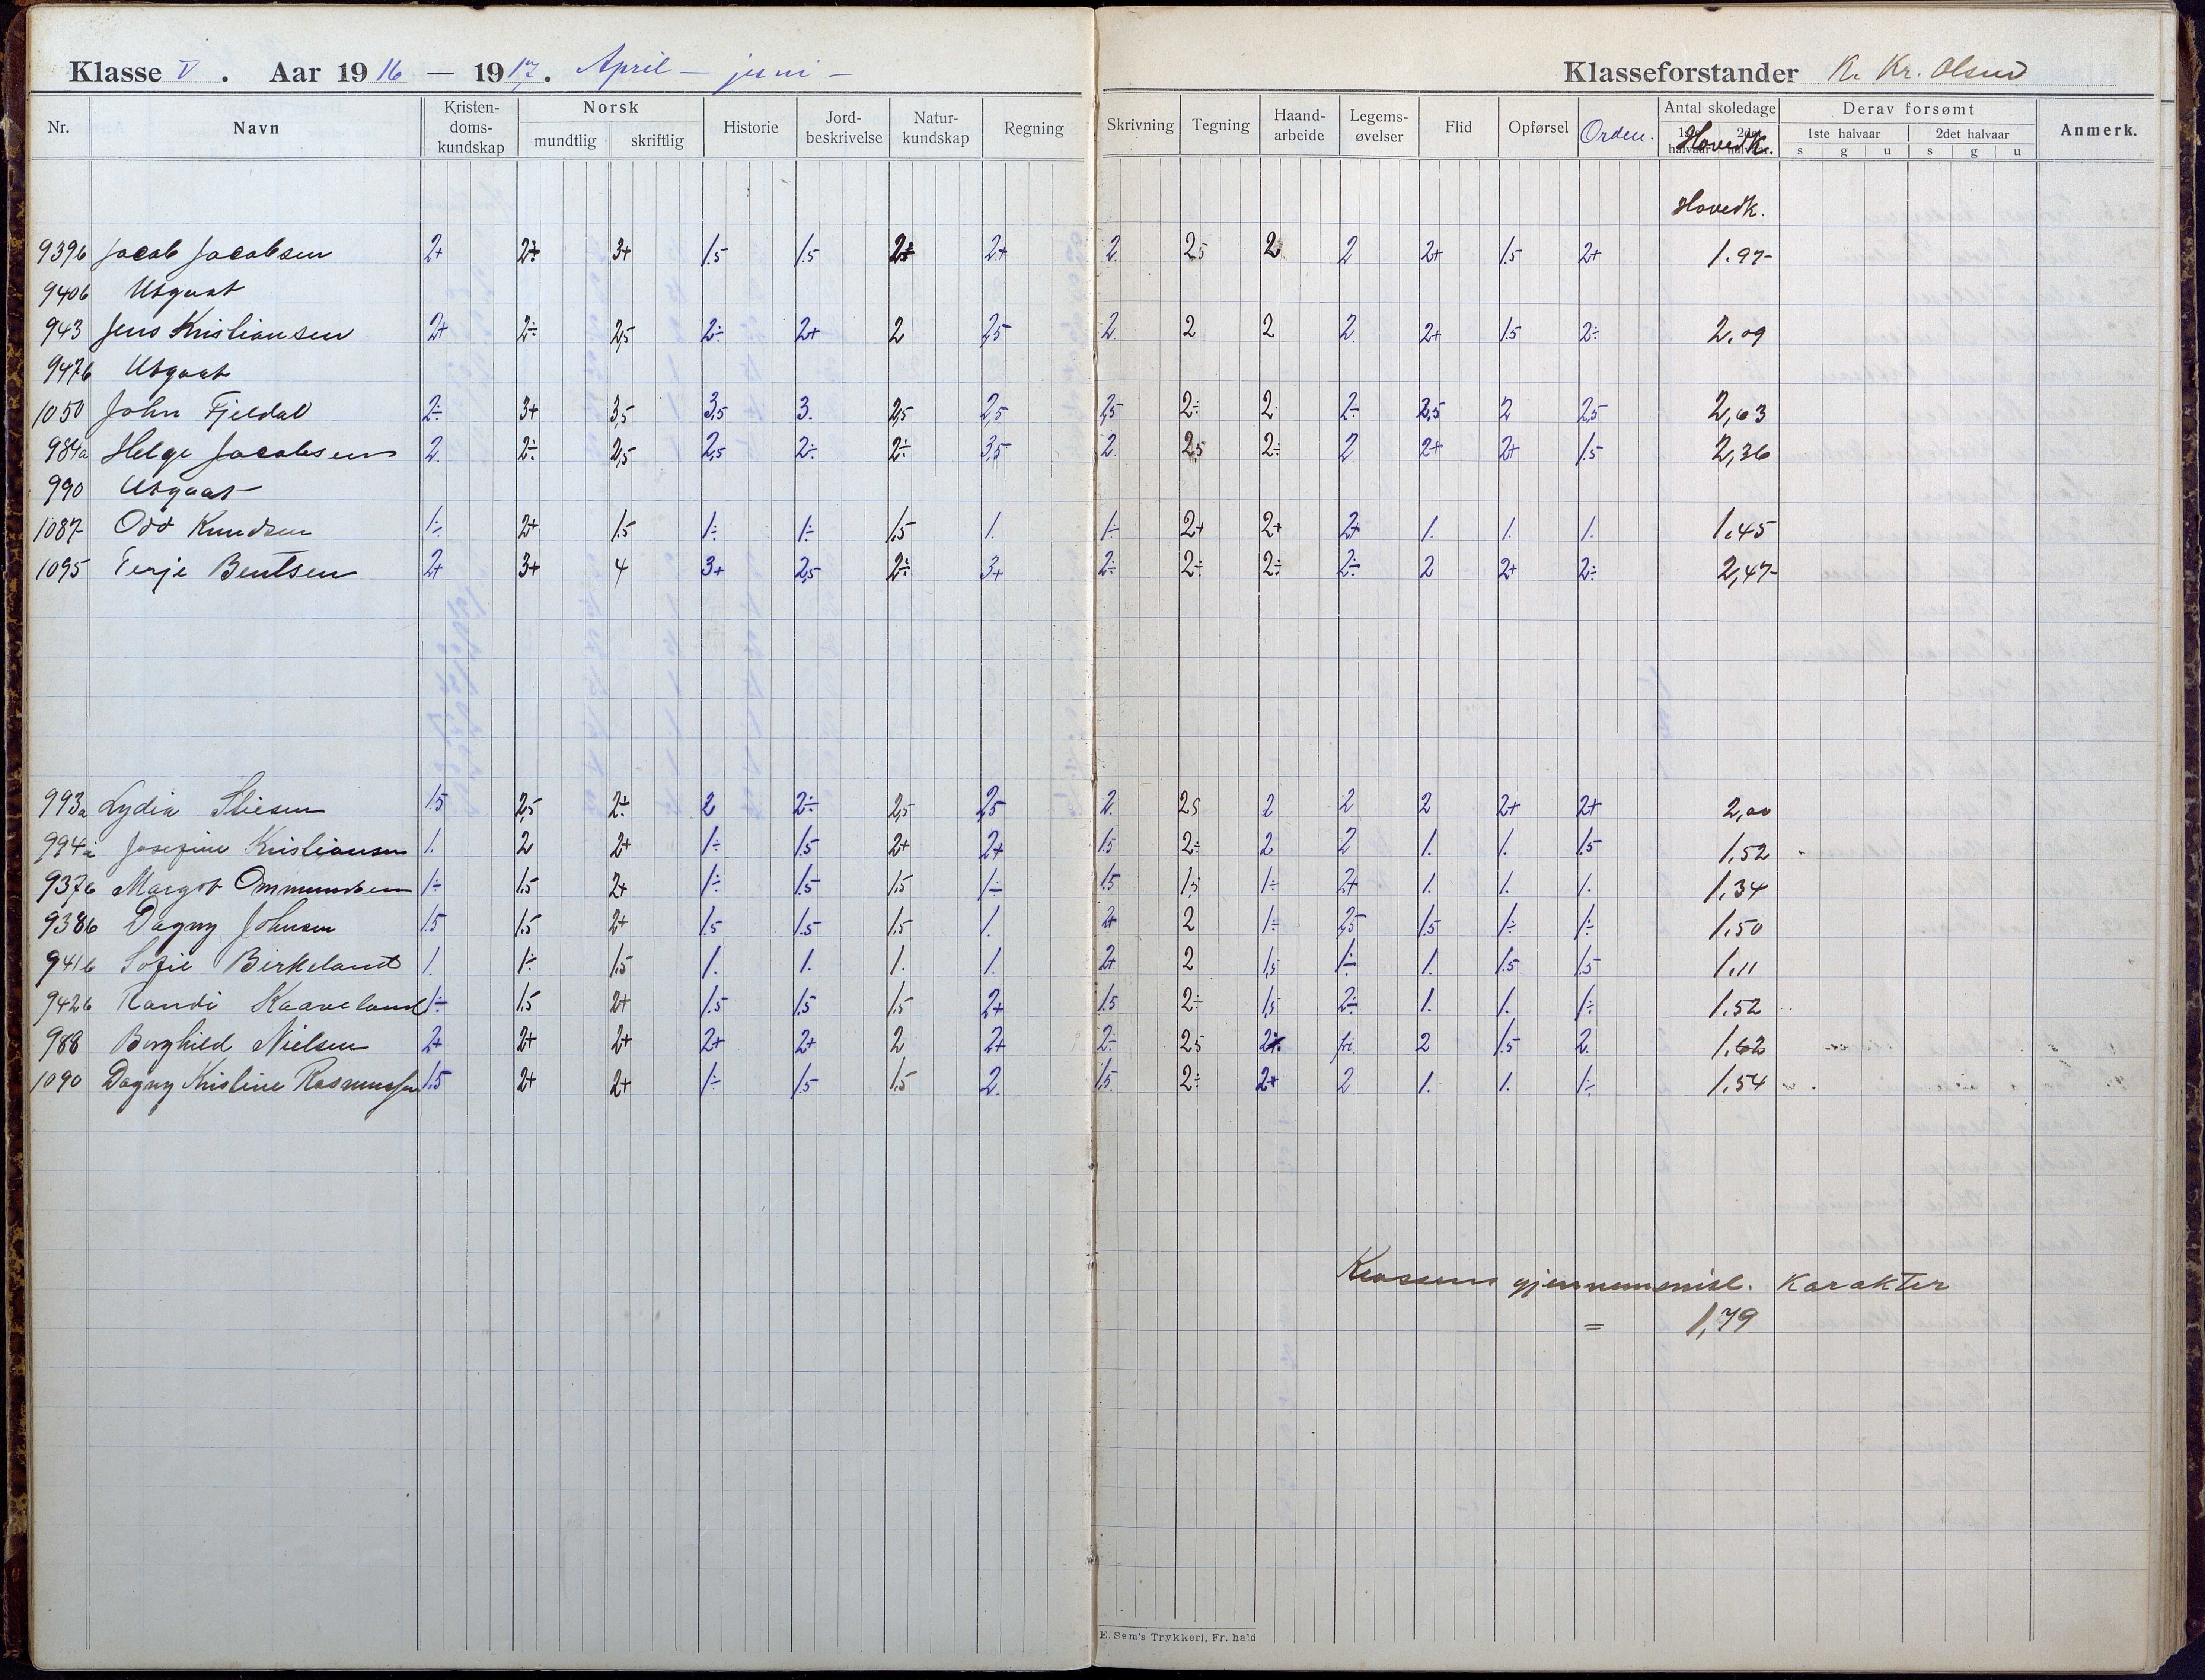 Klasse V. Aar 1916 — 1917. April — juni —
Klasseforstander Kr. Olsen
Nr. Navn Kristendomskundskap Norsk mundtlig skriftlig Historie Jordbeskrivelse Naturkundskap Regning Skrivning Tegning Haandarbeide Legemsøvelser Flid Opførsel Orden. Antal skoledage Hovedk. Derav forsømt 1ste halvaar s g u 2det halvaar s g u Anmerk.
Hovedk.
939b Jacob Jacobsen 2+ 2÷ 3+ 1.5 1.5 2± 2+ 2 2.5 2 2 2+ 1.5 2+ 1.97
940b Utgaat
943 Jens Kristiansen 2+ 2÷ 2,5 2÷ 2+ 2 2,5 2. 2 2 2 2+ 1.5 2÷ 2,09
947b Utgaat
1050 John Fjeldal 2÷ 3+ 3,5 3,5 3. 2,5 2,5 2,5 2÷ 2 2÷ 2,5 2 2,5 2,63
984a Helge Jacobsen 2. 2÷ 2,5 2,5 2÷ 2÷ 3,5 2 2,5 2÷ 2 2+ 2+ 1.5 2,36
990 Utgaat
1087 Odd Knudsen 1÷ 2+ 1.5 1÷ 1÷ 1.5 1. 1÷ 2+ 2+ 2+ 1. 1. 1. 1.45
1095 Terje Bentsen 2+ 3+ 4 3+ 2,5 2÷ 3+ 2÷ 2÷ 2÷ 2÷ 2 2+ 2÷ 2,47
993a Lydia 1.5 2,5 2÷ 2 2÷ 2,5 2,5 2. 2.5 2 2 2 2+ 2+ 2,00
994a Josefine Kristiansen 1. 2 2+ 1÷ 1.5 2+ 2+ 1.5 2÷ 2 2 1. 1. 1.5 1,52
937b Margot Ommundsen 1÷ 1.5 2+ 1÷ 1.5 1.5 1÷ 1.5 1.5 1÷ 2+ 1. 1. 1. 1,34
938b Dagny Johnsen 1.5 1.5 2+ 1.5 1.5 1.5 1. 2+ 2 1÷ 2,5 1.5 1÷ 1÷ 1.50
941b Sofie Birkeland 1. 1÷ 1.5 1. 1. 1. 1. 2+ 2 1,5 1÷ 1. 1.5 1.5 1.11
942b Randi Kaaveland 1÷ 1.5 2+ 1.5 1.5 1.5 2+ 1.5 2÷ 1,5 2÷ 1. 1. 1÷ 1.52
988 Borghild Nielsen 2+ 2+ 2+ 2+ 2+ 2 2+ 2÷ 2.5 2÷ fri. 2 1.5 2. 1.62
1090 Dagny Kristine Rasmussen 1.5 2+ 2+ 1÷ 1.5 1.5 2. 1.5 2÷ 2+ 2 1. 1. 1÷ 1.54
Klassens gjennemsnitl. karakter
= 1,79
E. Sem's Trykkeri, Fr. hald